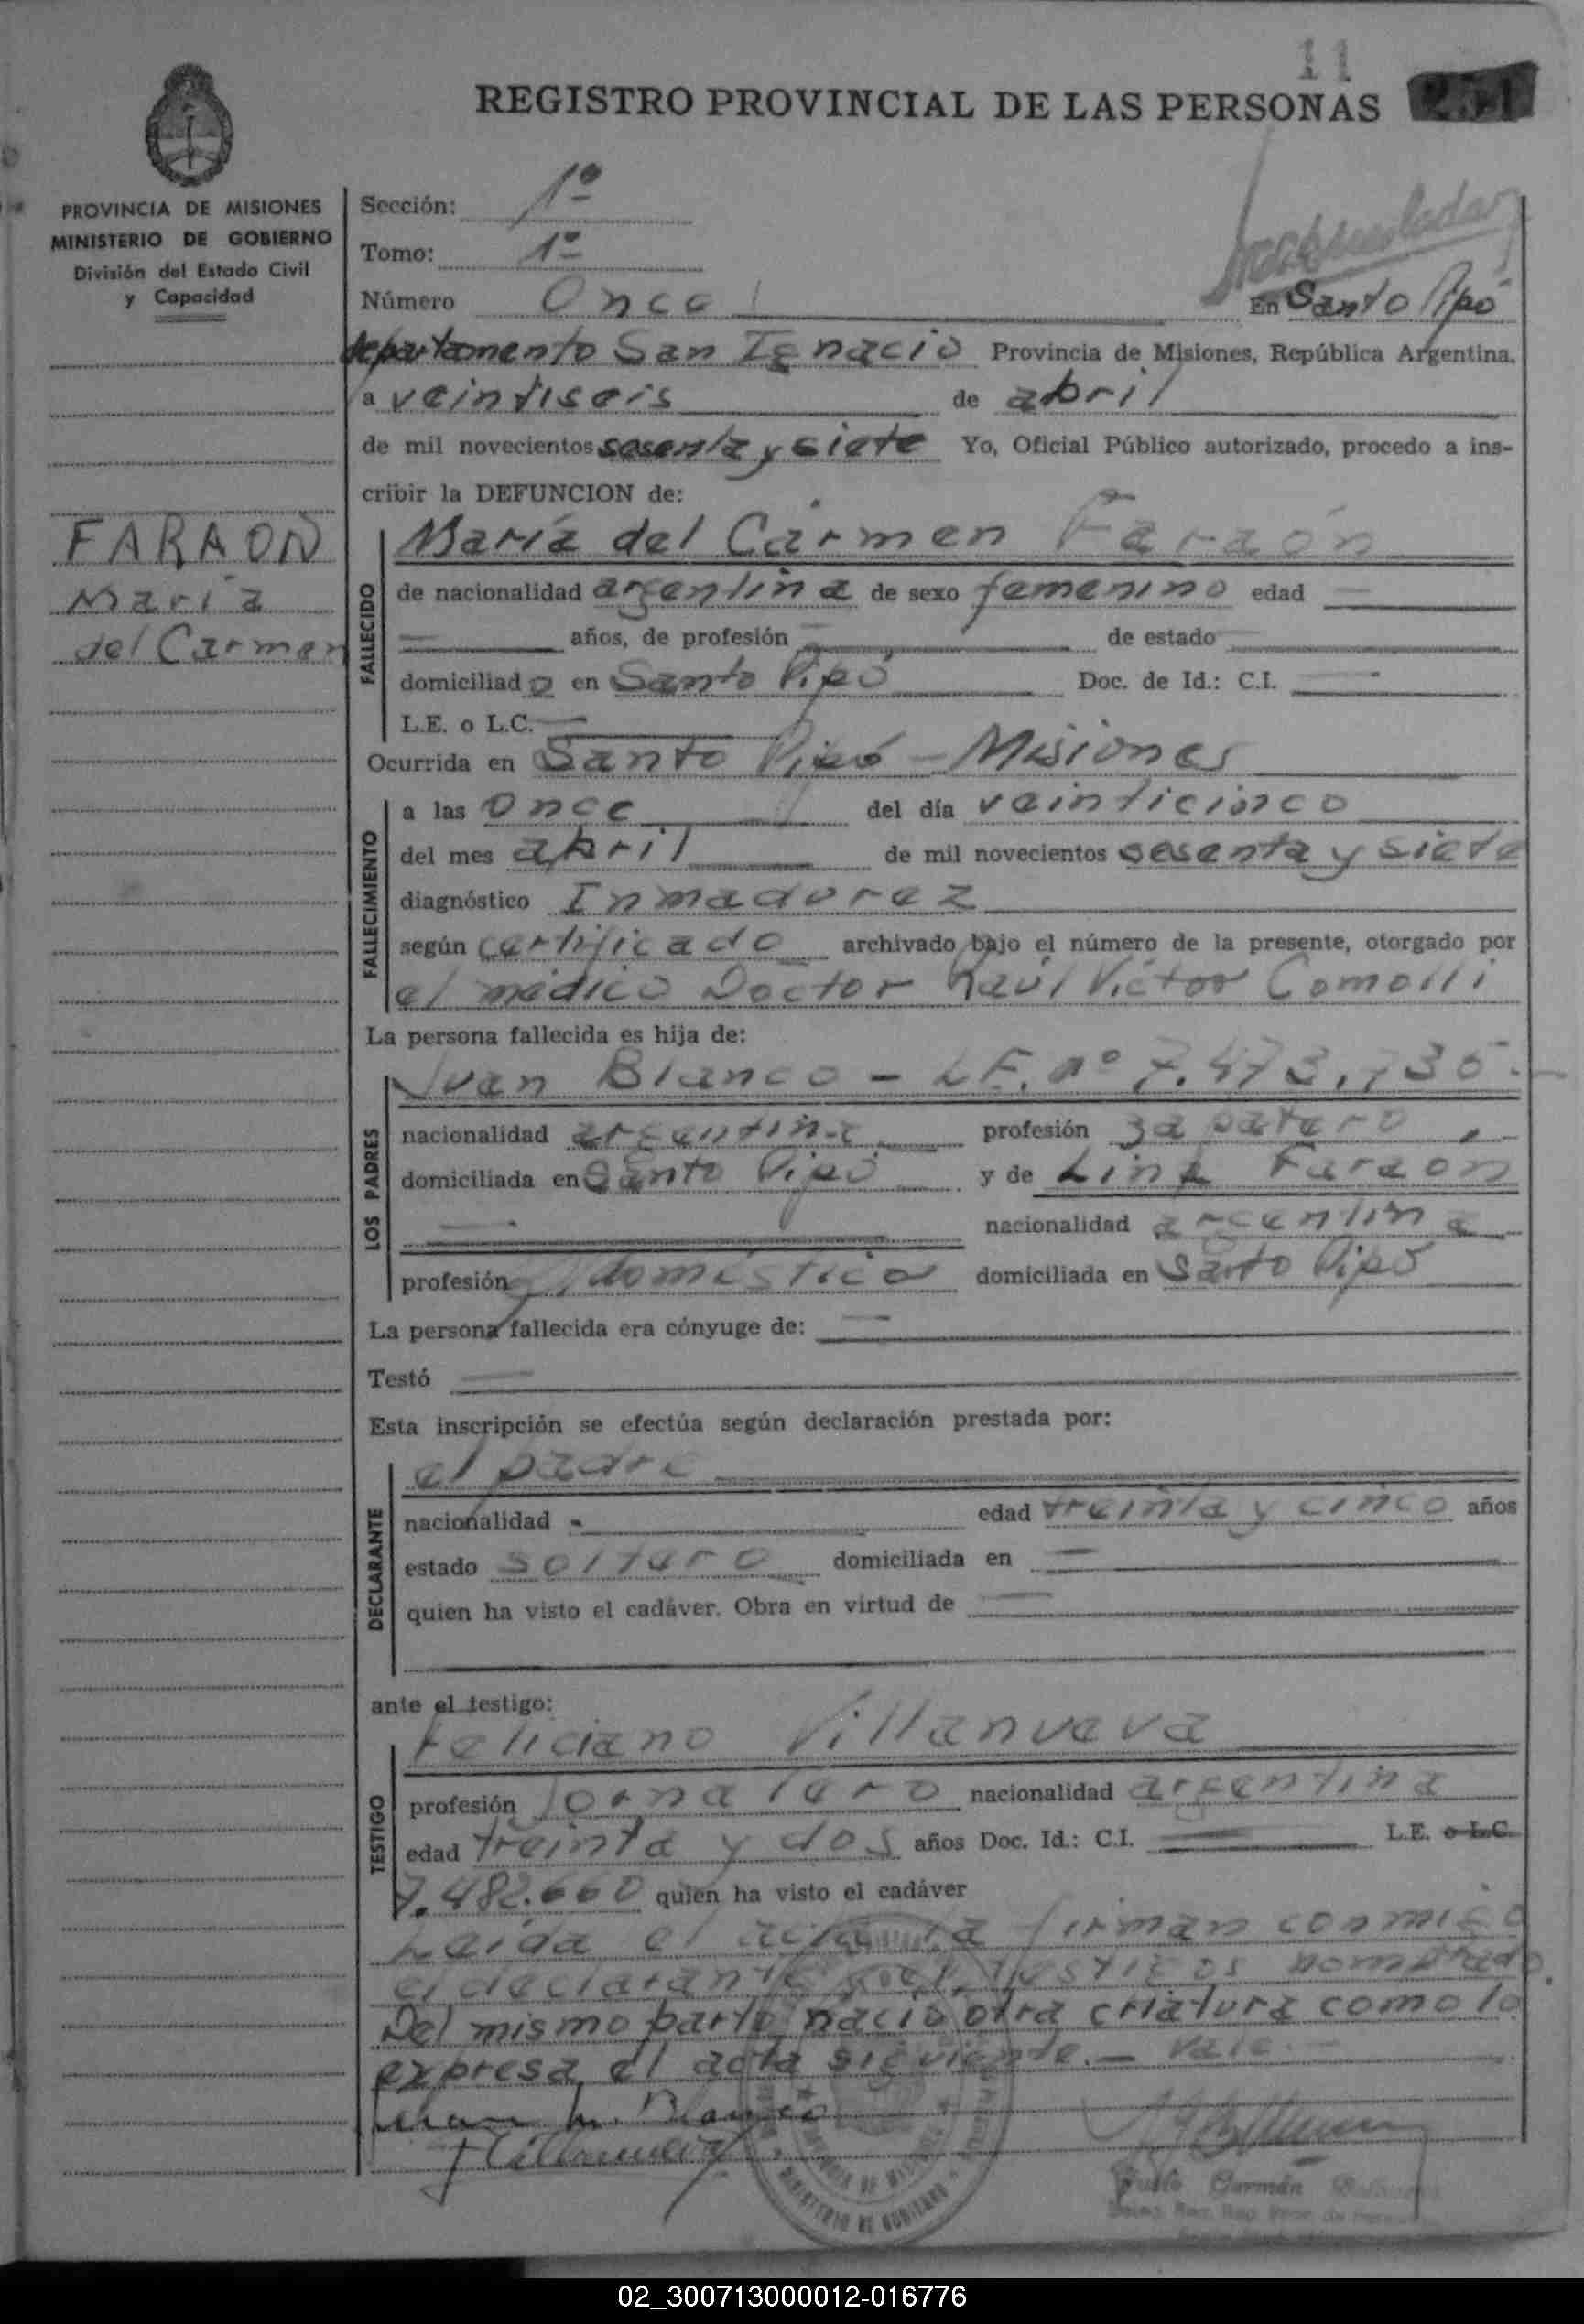 11
REGISTRO PROVINCIAL DE LAS PERSONAS
PROVINCIA DE MISIONES
MINISTERIO DE GOBIERNO
División del Estado Civil
y Capacidad
FARAON
María
del Carmen
Sección: 1º
Tomo: 1º
Número Once
En Santo Pipó
departamento San Ignacio Provincia de Misiones, República Argentina,
a veintiseis de abril
de mil novecientos sesenta y siete Yo, Oficial Público autorizado, procedo a ins-
cribir la DEFUNCION de:
FALLECIDO
María del Carmen Faraón
de nacionalidad argentina de sexo femenino edad —
— años, de profesión — de estado —
domiciliado en Santo Pipó Doc. de Id.: C.I. —
L.E. o L.C. —
Ocurrida en Santo Pipó - Misiones
FALLECIMIENTO
a las once del día veinticinco
del mes abril de mil novecientos sesenta y siete
diagnóstico Inmadurez
según certificado archivado bajo el número de la presente, otorgado por
el médico Doctor Raúl Víctor Comolli
La persona fallecida es hija de:
LOS PADRES
Juan Blanco - LE. nº 7.473.735.-
nacionalidad argentina profesión zapatero
domiciliada en Santo Pipó y de Lina Faraón
— nacionalidad argentina
profesión doméstica domiciliada en Santo Pipó
La persona fallecida era cónyuge de: —
Testó —
Esta inscripción se efectúa según declaración prestada por:
DECLARANTE
el padre
nacionalidad - edad treinta y cinco años
estado soltero domiciliada en —
quien ha visto el cadáver. Obra en virtud de —
ante el testigo:
TESTIGO
Feliciano Villanueva
profesión Jornalero nacionalidad argentina
edad treinta y dos años Doc. Id.: C.I. — L.E. o L.C.
7.482.660 quien ha visto el cadáver
Leída el acta la firman conmigo
el declarante y el testigos nombrado.
Del mismo parto nació otra criatura como lo
expresa el acta siguiente. - Vale. -
Juan M. Blanco
FVillanueva
Germán
MINISTERIO DE GOBIERNO
02_300713000012-016776